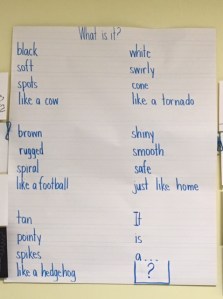 What is it?
black
soft
spots
like a cow
white
swirly
cone
like a tornado
brown
rugged
spiral
like a football
shiny
smooth
safe
just like home
tan
pointy
spikes
like a hedgehog
It
is
a...
?